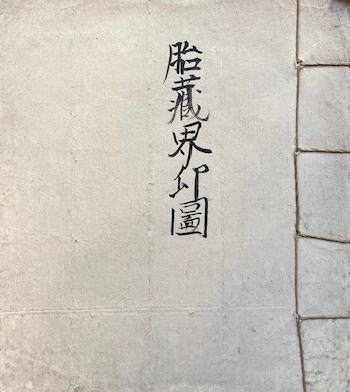 胎藏界印圖